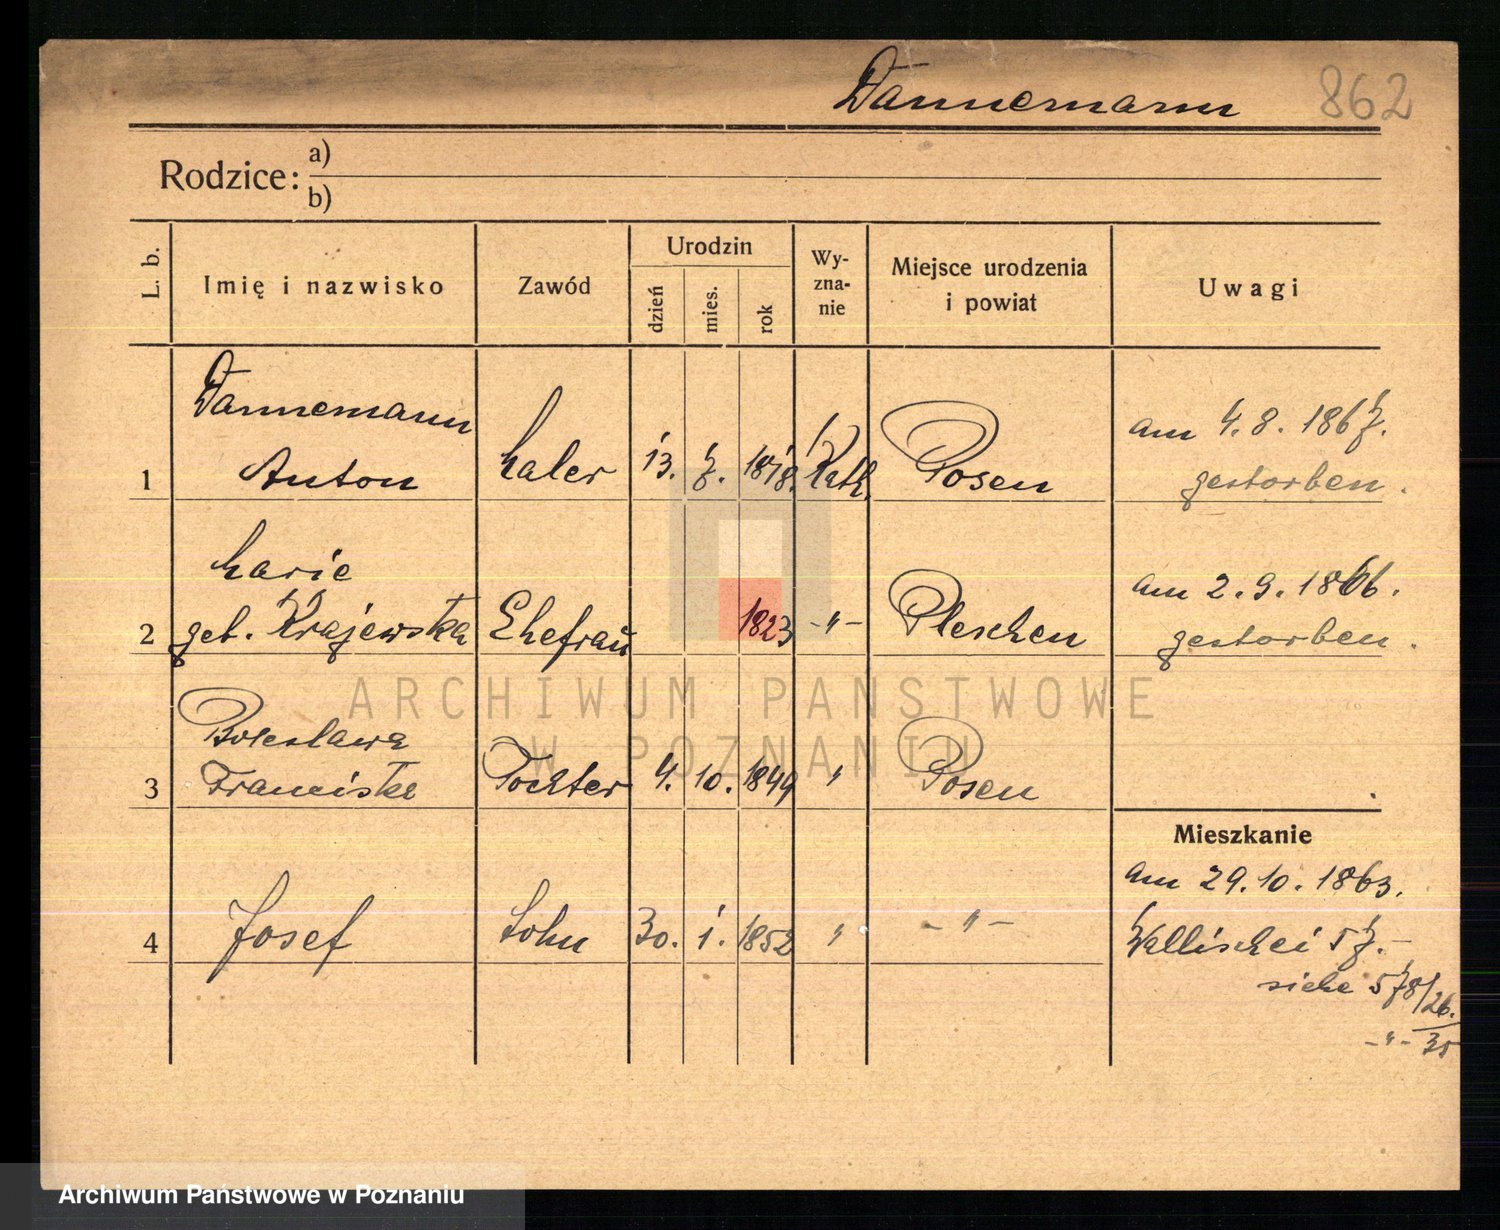 Dannemann 862
Rodzice: a)
b)
L. b. Imię i nazwisko Zawód Urodzin dzień mies. rok Wy-zna-nie Miejsce urodzenia i powiat Uwagi
Dannemann am 4. 8. 1867.
1 Anton Maler 13. 7. 1818. Kath. Posen gestorben.
Marie am 2. 9. 1866.
2 geb. Krajewska Ehefrau 1823 -"- Pleschen gestorben.
Boleslawa
3 Franciska Tochter 4. 10. 1849 " Posen
Mieszkanie
am 29. 10. 1863.
4 Josef Sohn 30. 1. 1852 " -"- Wallischei 57.-
siehe 578/26.
-"- 35
ARCHIWUM PAŃSTWOWE
W POZNANIU
Archiwum Państwowe w Poznaniu